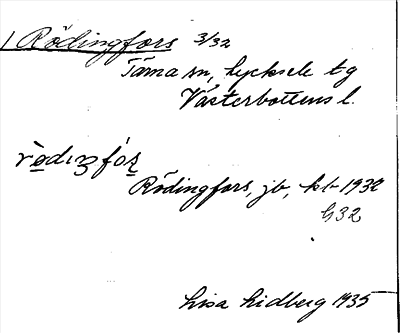 1 Rödingfors 3/32
Tärna sn, Lycksele tg
Västerbottens l.
rödıŋfórs
Rödingfors, jb, kb 1932
G32
Lisa Lidberg 1935